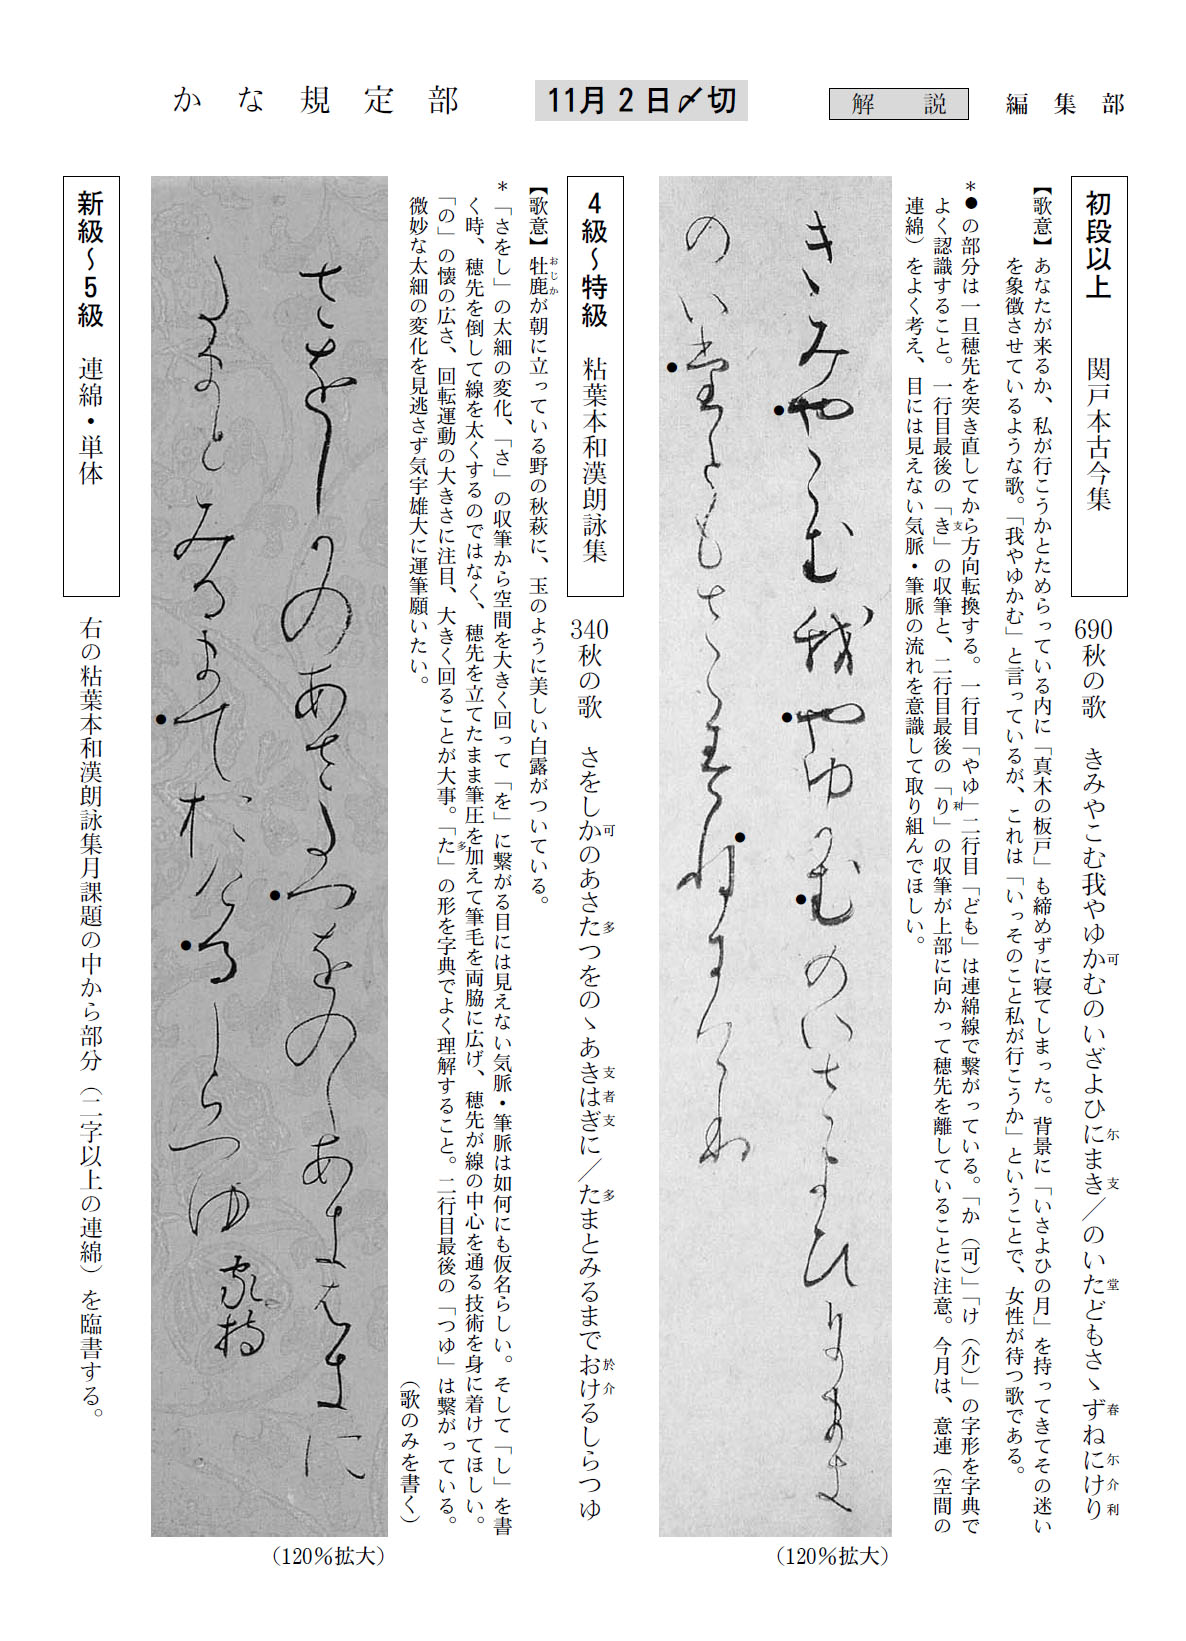 かな規定部
11月2日〆切
解説 編集部
初段以上 関戸本古今集
690秋の歌 きみやこむ我やゆか可むのいざよひに尓まき支／のいた堂どもさゝず春ねに尓け介り利
【歌意】あなたが来るか、私が行こうかとためらっている内に「真木の板戸」も締めずに寝てしまった。背景に「いさよひの月」を持ってきてその迷い
を象徴させているような歌。「我やゆかむ」と言っているが、これは「いっそのこと私が行こうか」ということで、女性が待つ歌である。
＊●の部分は一旦穂先を突き直してから方向転換する。一行目「やゆ」二行目「ども」は連綿線で繋がっている。「か（可）」「け（介）」の字形を字典で
よく認識すること。一行目最後の「き支」の収筆と、二行目最後の「り利」の収筆が上部に向かって穂先を離していることに注意。今月は、意連（空間の
連綿）をよく考え、目には見えない気脈・筆脈の流れを意識して取り組んでほしい。
きみやこむ我やゆ可むのいさよひ尓ま支
のい堂ともさゝ春ね尓介利
（120％拡大）
4級～特級 粘葉本和漢朗詠集
340秋の歌 さをしか可のあさた多つをのゝあき支は者ぎ支に／た多まとみるまでお於け介るしらつゆ
【歌意】牡鹿おじかが朝に立っている野の秋萩に、玉のように美しい白露がついている。
＊「さをし」の太細の変化、「さ」の収筆から空間を大きく回って「を」に繋がる目には見えない気脈・筆脈は如何にも仮名らしい。そして「し」を書
く時、穂先を倒して線を太くするのではなく、穂先を立てたまま筆圧を加えて筆毛を両脇に広げ、穂先が線の中心を通る技術を身に着けてほしい。
「の」の懐の広さ、回転運動の大きさに注目、大きく回ることが大事。「た多」の形を字典でよく理解すること。二行目最後の「つゆ」は繋がっている。
微妙な太細の変化を見逃さず気宇雄大に運筆願いたい。
（歌のみを書く）
さをし可のあさ多つをのゝあ支者支に
多まとみるまて於介るしらつゆ 家持
（120％拡大）
新級～5級 連綿・単体
右の粘葉本和漢朗詠集月課題の中から部分（二字以上の連綿）を臨書する。